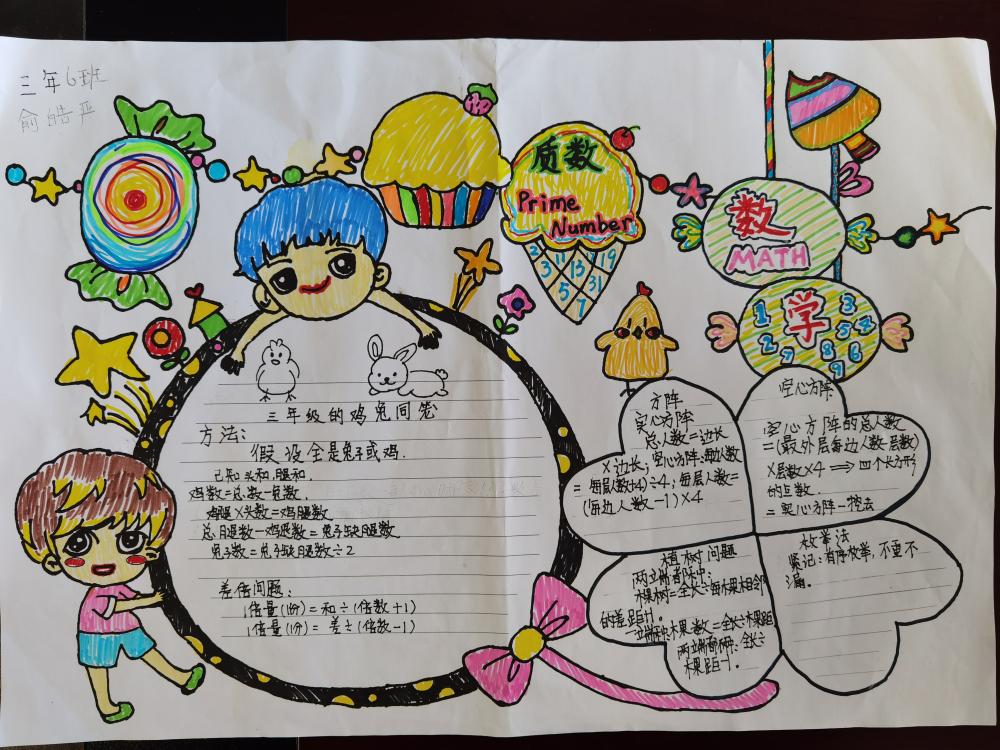 三年6班
俞皓严
质数
Prime
Number
2 3 11 13 19
5 31
7
数
MATH
学
1 2 3 5 4 7 8 6 9
三年级的鸡兔同笼
方法:
假设全是兔子或鸡.
已知头和,腿和.
鸡数=总数-兔数.
鸡腿×头数=鸡腿数
总腿数-鸡腿数=兔子缺腿数
兔子数=兔子缺腿数÷2
差倍问题:
1倍量(1份)=和÷(倍数+1)
1倍量(1份)=差÷(倍数-1)
方阵
实心方阵
总人数=边长
×边长;空心方阵:每边人数
=每层人数÷4;每层人数=
(每边人数-1)×4
空心方阵
空心方阵的总人数
=(最外层每边人数-层数)
×层数×4⟹四个长方形
的点数.
=实心方阵-挖去
植树问题
两端都种:
棵树=全长÷每棵相邻
的差距+1。
一端种:棵数=全长÷棵距
两端都种:全长÷
棵距-1。
枚举法
紧记:有序枚举,不重不
漏。